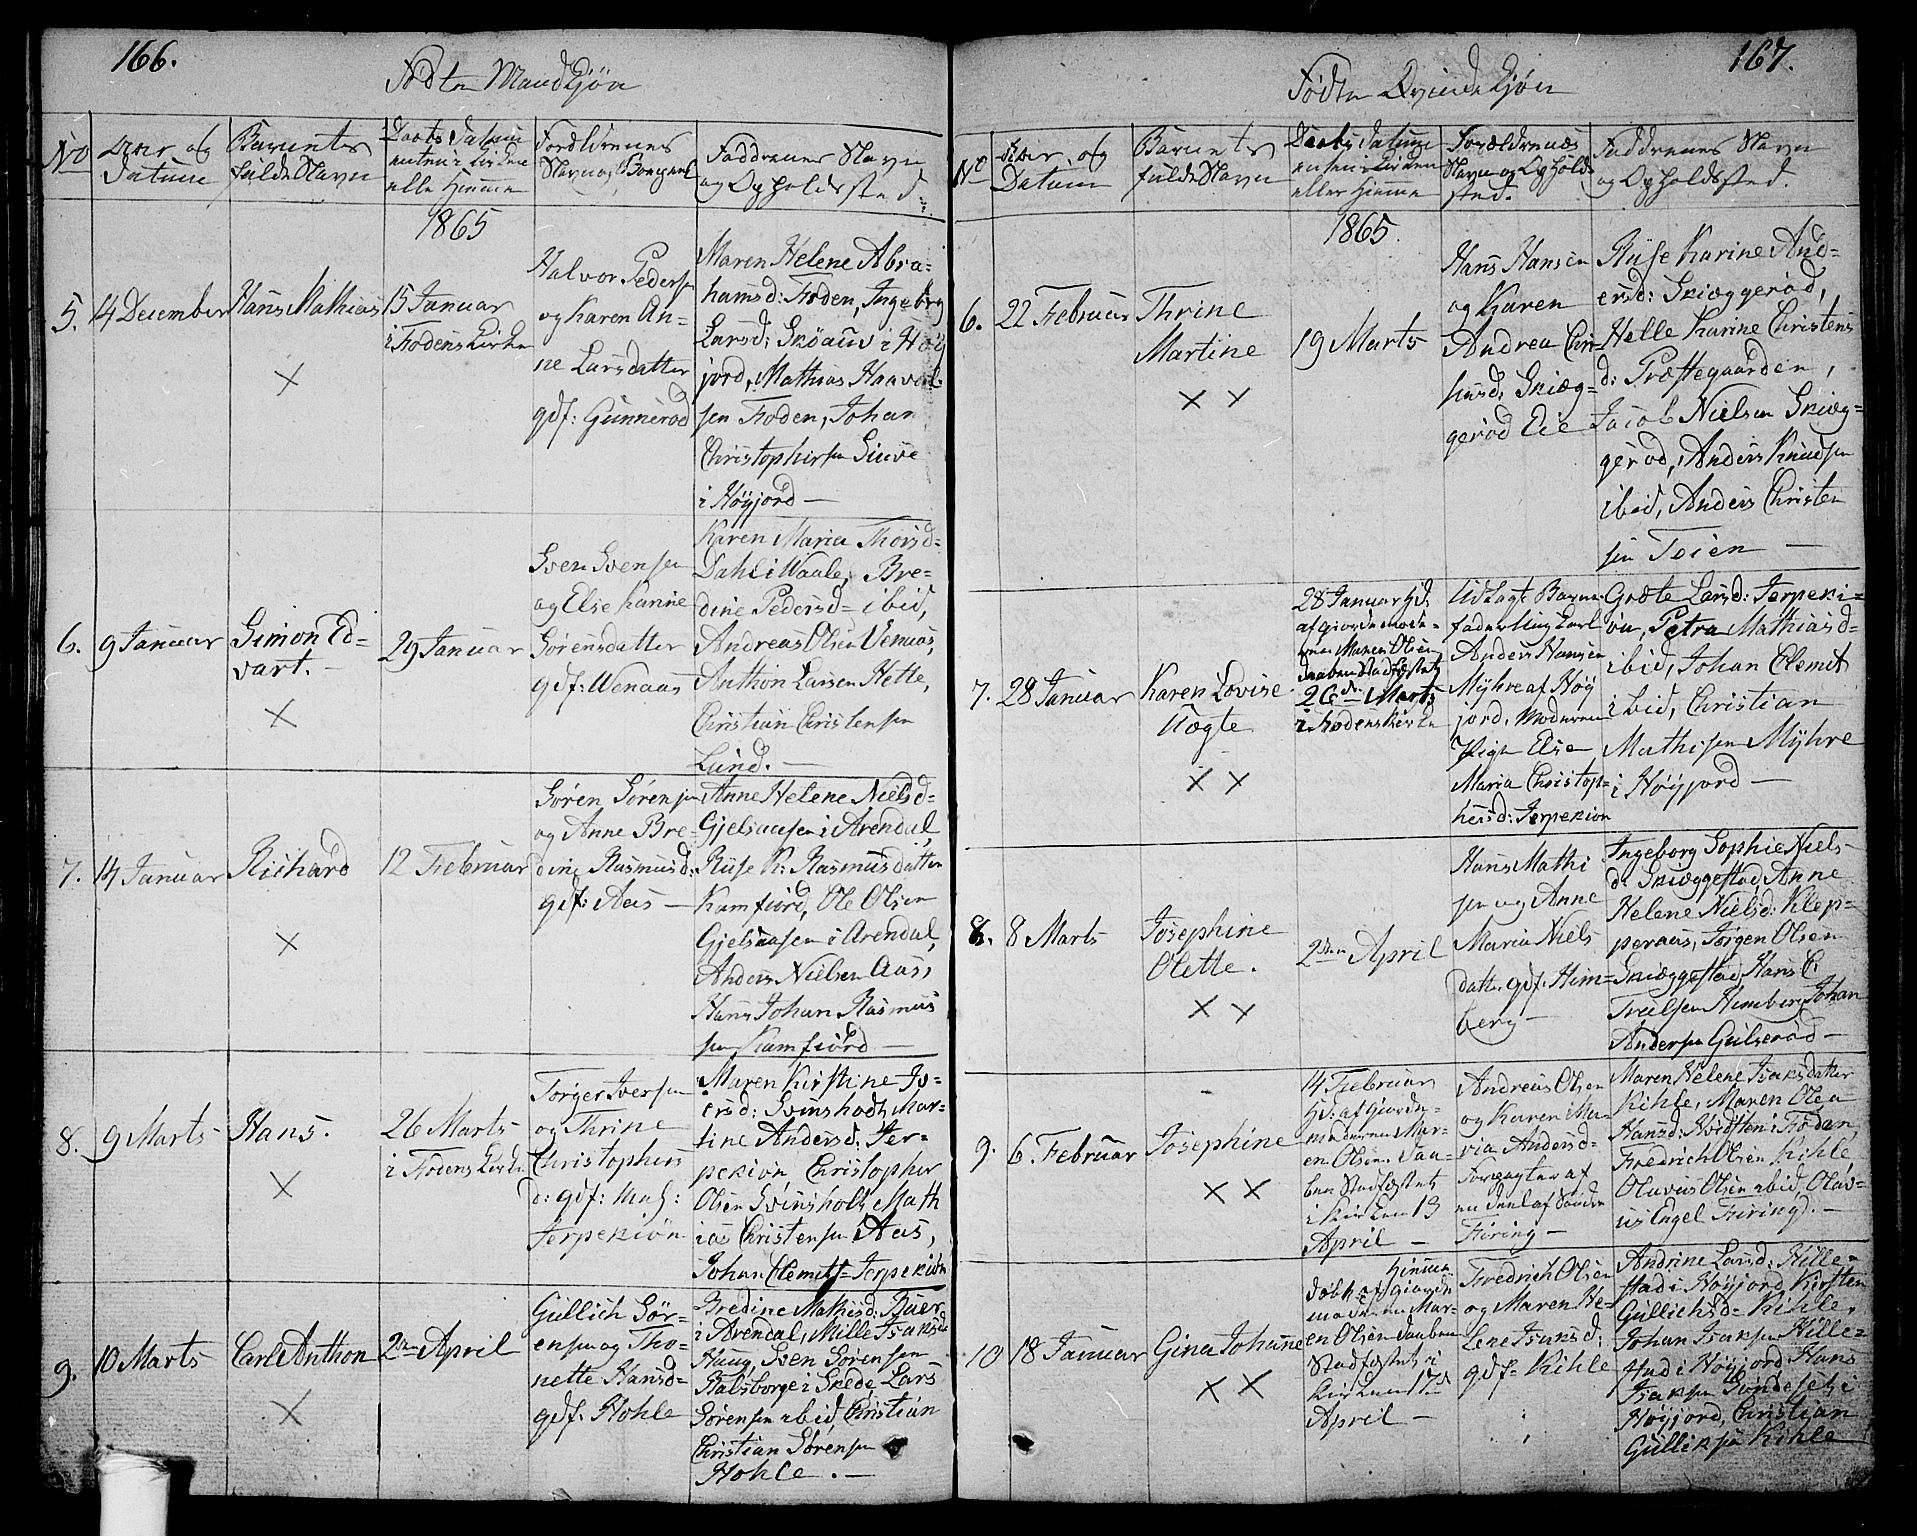 166.
Födte Mandkjøn
No
Aar og Datum
Barnets fulde Navn
Daabs Datum enten i Kirken eller Hjemme
Forældrenes Navn og Boepæl
Faddrenes Navn og Opholdssted.
1865
5.
14 December
Hans Mathias
×
15 Januar
i Fodens Kirke
Halvor Peders
og Karen An-
ne Larsdatter
gdf: Gunnerød
Maren Helene Abra-
hamsd: Foden, Ingeborg
Larsd: Skoaus i Høy
jord, Mathias Haavol
sen Foden, Johan
Christophersen
i Høyjord —
6.
9 Januar
Simon Ed-
vart.
×
29 Januar
Sven Svensen
og Else Karine
Sørensdatter
gdf: Wenaas
Karen Maria Thorsd=
Dahl i Waale, Bre-
dine Pedersd= ibid,
Andreas Olsen Venaas,
Anthon Larsen Hette,
Christian Christensen
Lund. —
7.
14 Januar
Richard
×
12 Februar
Søren Sørensen
og Anne Bre-
dine Rasmusd:
gdf: Aas —
Anne Helene Nielsd=
Gjelsaasen i Arendal,
Rise K: Rasmusdatter
Kamfiord, Ole Olsen
Gjelsaasen i Arendal,
Anders Nielsen Aass
Hans Johan Rasmus
sen Kamfiørd —
8.
9 Marts
Hans.
×
26 Marts
i Foens Kirke
Torger Iversen
og Thrine
Christophers
d: gdf:
Jerpekiøn
Maren Kirstine Iv-
ersd: Svinsholt, Mar-
tine Andersd: Jer-
pekiøn Christopher
Olsen Svinsholt, Math
ias Christensen Aas,
Johan Clemits= Jerpekiøn
9.
10 Marts
Carl Anthon
×
2den April
Gullich Sør-
ensen og Tho-
nette Hansd=
gdf: Hohle
Bredine Mathisd: Buer
i Arendal, Mille Isaksd
Haug, Sven Sørensen
Valsborge i Skede, Lars
Sørensen ibid Christian
Christian Sørensen
Hohle. —
167.
Födte Qvindekjøn
No
Aar, og Datum
Barnets fulde Navn
Daabs Datum enten i Kirken eller Hjemme
Forældrenes Navn og Opholdssted.
Faddrenes Navn og Opholdssted.
1865.
6.
22 Februar
Thrine
Martine
× ×
19 Marts
Hans Hansen
og Karen
Andrea Chri-
stensd: Skiæg-
gerød Eie
Rise Karine And-
ersd: Skiæggerød,
Helle Karine Christens
d: Præstegaarden,
Jacob Nielsen Skiæg-
gerød, Anders Knudsen
ibid, Anders Christen
sen Teien —
7.
28 Januar
Karen Lovise
Aagte
× ×
28 Januar hjd.
af Giordemode-
ren Maren Olsen
daaben Stadfæstet
26de Marts
i Fodens Kirke
Udlagt Barne-
fader Ung Karl
Anders Hansen
Myhre af Høy
jord, Moderen
Pige Else
Maria Christop-
hersd: Jerpekiøn
Grete Larsd: Jerpeki-
øn, Petra Mathiasd-
ibid, Johan Clemit
ibid, Christian
Mathisen Myhre
i Høyjord —
8.
8 Marts
Josephine
Olette.
× ×
2den April
Hans Mathi
sen og Anne
Maria Niels
datter gdf: Him=
berg —
Ingeborg Sophie Niels-
d: Skiæggestad, Anne
Helene Nielsd: Klep-
peraas, Jørgen Olsen
Skiæggestad, Hans C.
Truelsen Himberg, Johan
Andersen Gulserød —
9.
6. Februar
Josephine
× ×
14 Februar
hjd: af Giorde-
moderen Mar-
en Olsen. Daa-
ben Stadfæstet
i Kirken 13
April —
Andreas Olsen
og Karen Ma-
ria Andersd-
Forpagter af
Firing —
Maren Helene Isaksdatter
Kihle, Maren Olea
Hansd: i Fodan,
Fredrich Olsen Kihle
Oluvius Olsen ibid, Olav-
us Engel Firing). —
10
18 Januar
Gina Johanne
× ×
Hiemme
Døbt af Giorde
moderen Mar-
en Olsen daaben
Stadfæstet i
Kirken 17de
April —
Fredrich Olsen
og Maren He-
lene Isaksd:
gdf= Kihle
Andrine Larsd: Hille-
stad i Høyjord, Kirsten
Gullichsd= Kihle,
Johan Isaksen Hille-
stad i Høyjord, Hans
Isaksen Søndeset i
Høyjord, Christian
Gulliksen Kihle